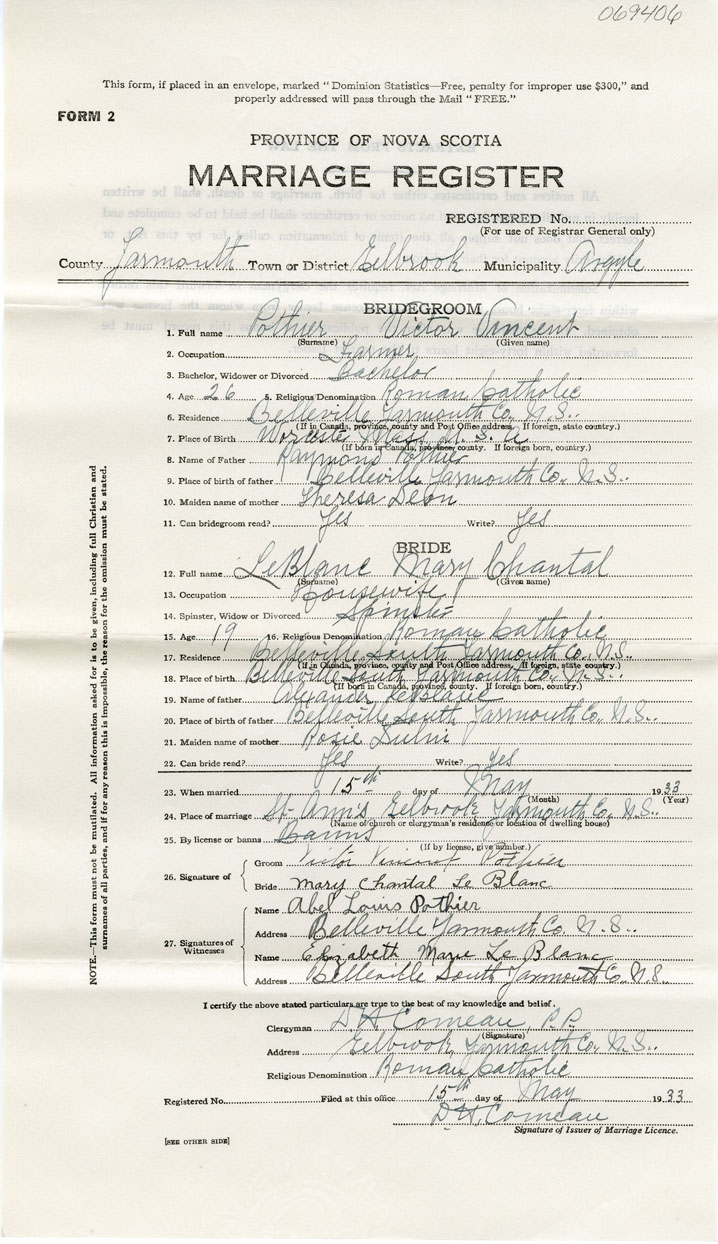 069406
This form, if placed in an envelope, marked "Dominion Statistics—Free, penalty for improper use $300," and
properly addressed will pass through the Mail "FREE."
FORM 2
PROVINCE OF NOVA SCOTIA
MARRIAGE REGISTER
REGISTERED No.
(For use of Registrar General only)
County Yarmouth Town or District Eelbrook Municipality Argyle
BRIDEGROOM
1. Full name Pothier Victor Vincent
(Surname) (Given name)
2. Occupation Farmer
3. Bachelor, Widower or Divorced Bachelor
4. Age 26 5. Religious Denomination Roman Catholic
6. Residence Belleville Yarmouth Co. N.S.
(If in Canada, province, county and Post Office address. If foreign, state country.)
7. Place of Birth Worcester Mass. U.S.A
(If born in Canada, province, county. If foreign born, country.)
8. Name of Father Raymond Pothier
9. Place of birth of father Belleville Yarmouth Co. N.S.
10. Maiden name of mother Theresa Deon
11. Can bridegroom read? Yes Write? Yes
BRIDE
12. Full name LeBlanc Mary Chantal
(Surname) (Given name)
13. Occupation Housewife
14. Spinster, Widow or Divorced Spinster
15. Age 19 16. Religious Denomination Roman Catholic
17. Residence Belleville South Yarmouth Co. N.S.
(If in Canada, province, county and Post Office address. If foreign, state country.)
18. Place of birth Belleville South Yarmouth Co. N.S.
(If born in Canada, province, county. If foreign born, country.)
19. Name of father Alexander LeBlanc
20. Place of birth of father Belleville South Yarmouth Co. N.S.
21. Maiden name of mother Rosie
22. Can bride read? Yes Write? Yes
23. When married 15th day of May 1933
(Month) (Year)
24. Place of marriage St. Ann's Eelbrook Yarmouth Co. N.S.
(Name of church or clergyman's residence or location of dwelling house)
25. By license or banns Banns
(If by license, give number.)
26. Signature of Groom Victor Vincent Pothier
Bride Mary Chantal Le Blanc
27. Signatures of Witnesses Name Abel Louis Pothier
Address Belleville Yarmouth Co. N.S.
Name Elizabeth Marie Le Blanc
Address Belleville South Yarmouth Co. N.S.
I certify the above stated particulars are true to the best of my knowledge and belief.
Clergyman D H Comeau, P.P.
(Signature)
Address Eelbrook, Yarmouth Co. N.S.
Religious Denomination Roman Catholic
Registered No. Filed at this office 15th day of May 1933
D. H. Comeau
Signature of Issuer of Marriage Licence.
[SEE OTHER SIDE]
NOTE.—This form must not be mutilated. All information asked for is to be given, including full Christian and
surnames of all parties, and if for any reason this is impossible, the reason for the omission must be stated.